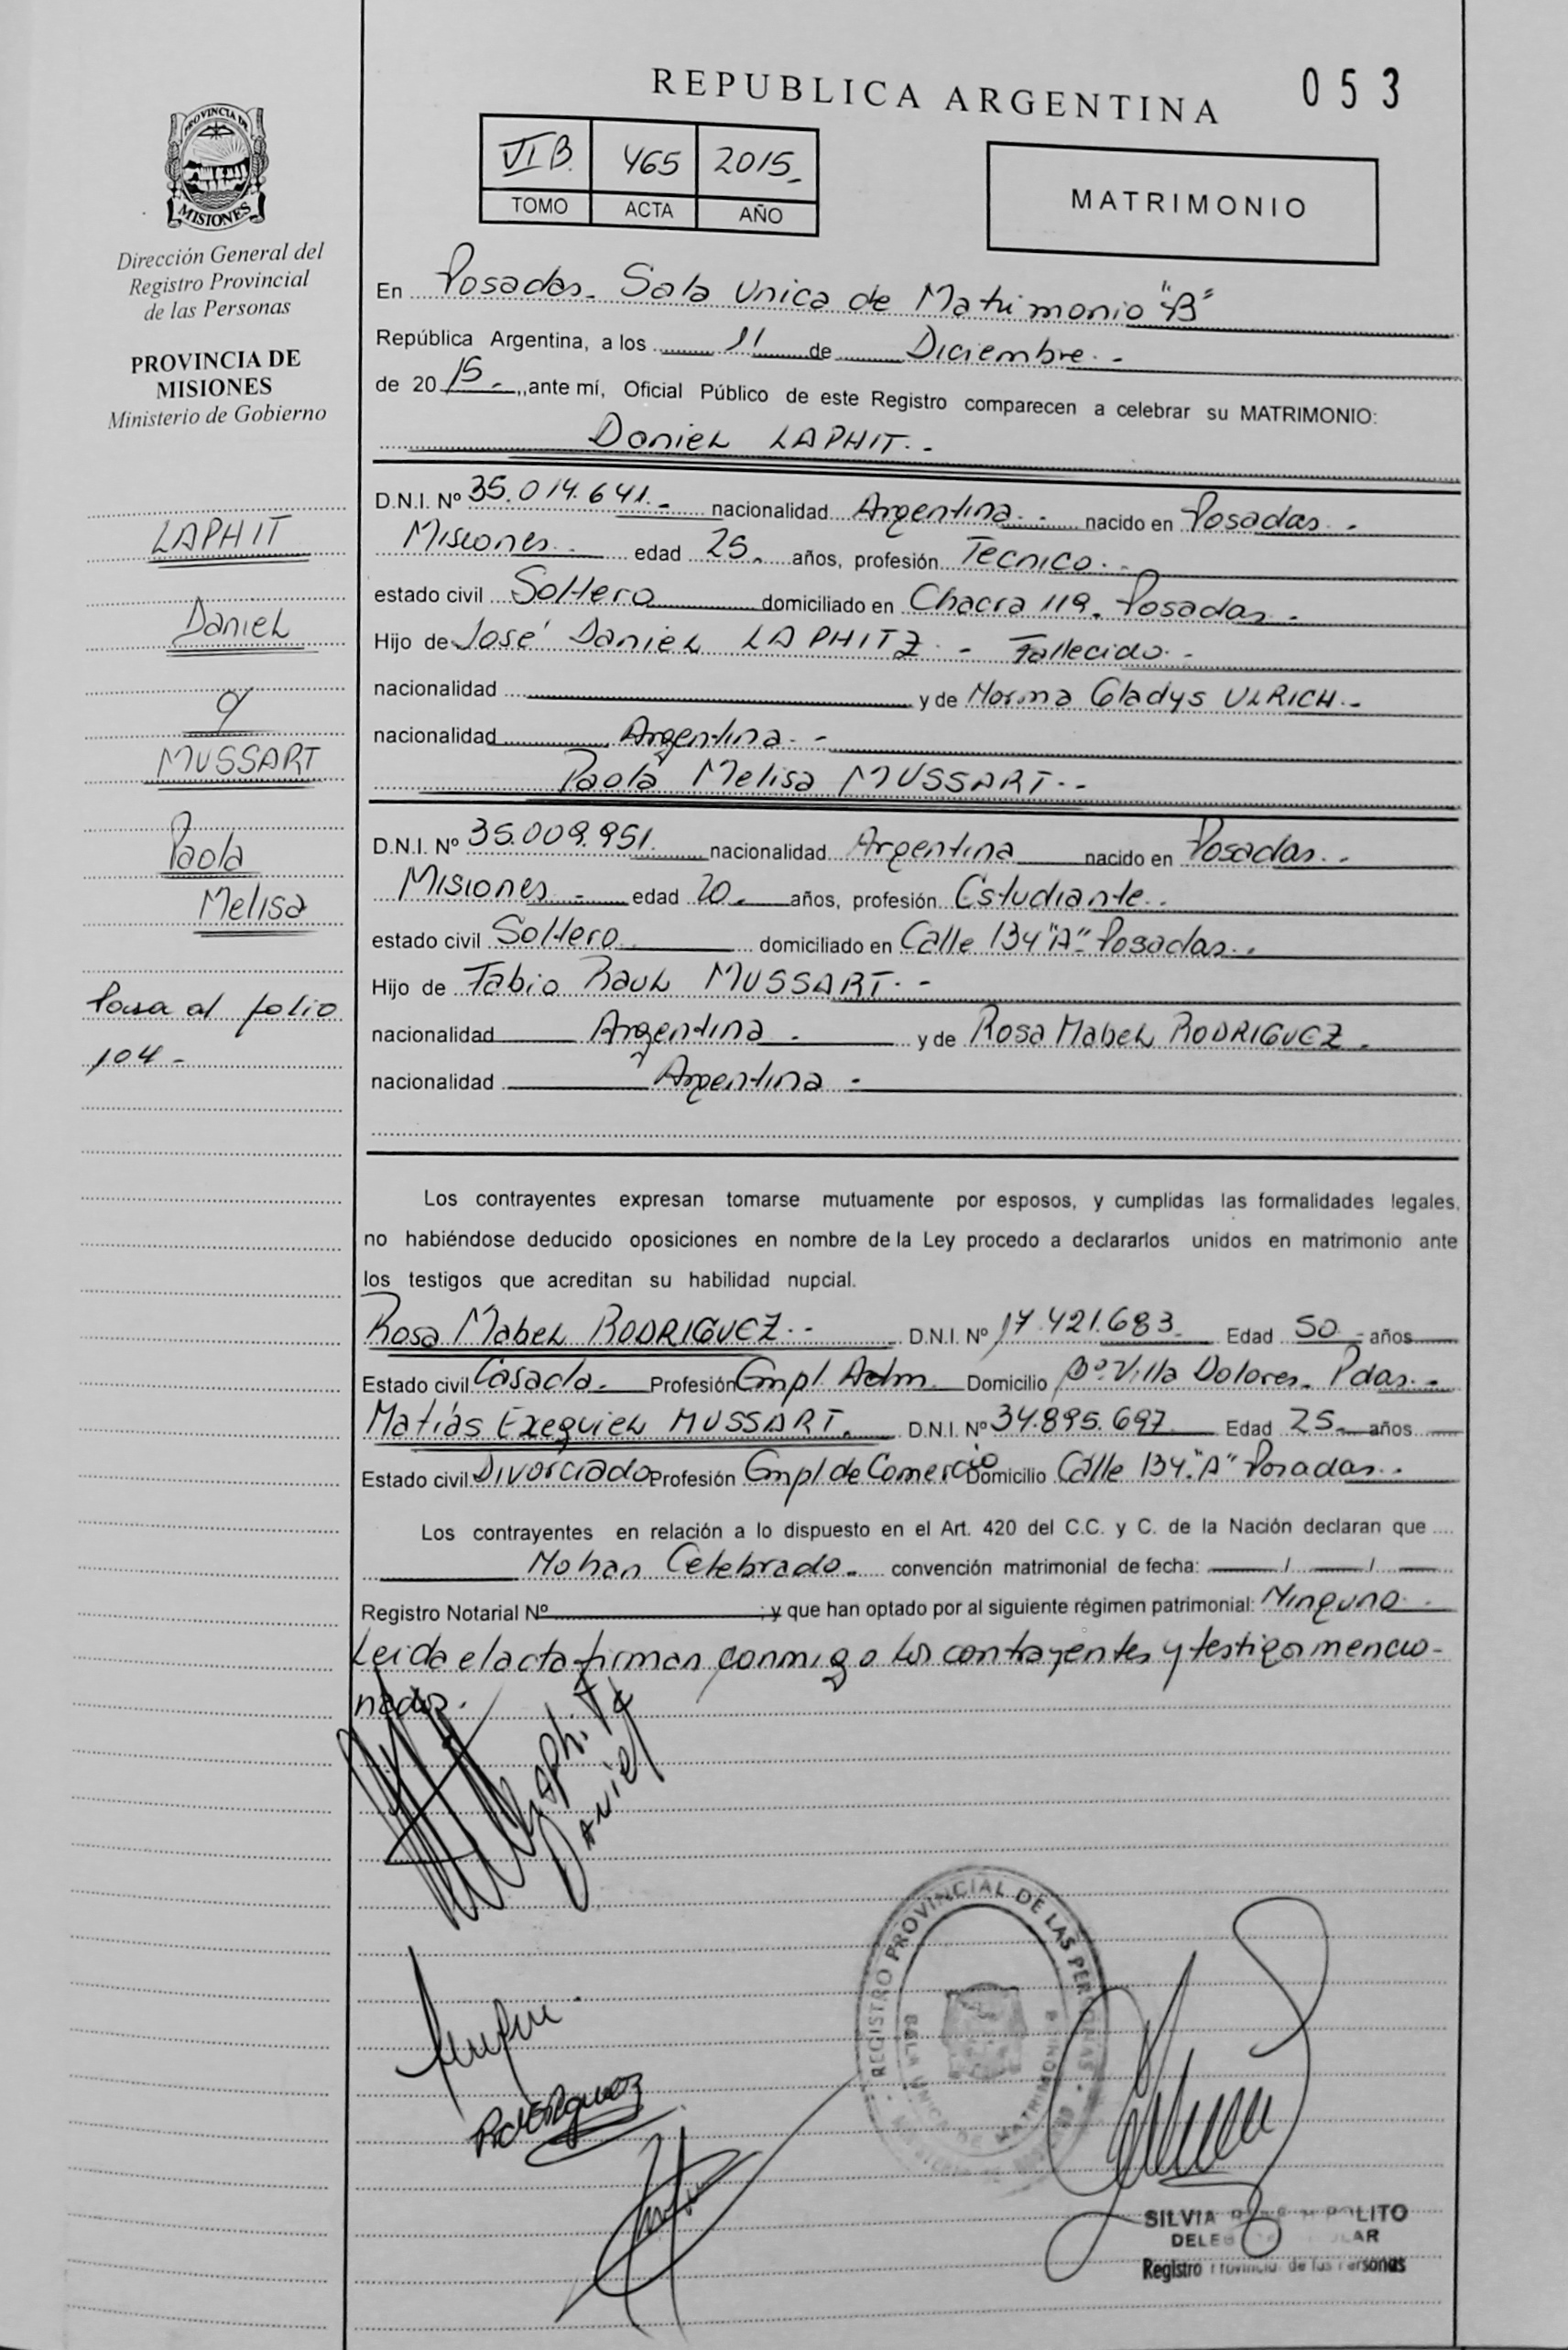 REPUBLICA ARGENTINA
053
VI B. 465 2015.-
TOMO ACTA AÑO
MATRIMONIO
PROVINCIA DE
MISIONES
Dirección General del
Registro Provincial
de las Personas
PROVINCIA DE
MISIONES
Ministerio de Gobierno
LAPHIT
Daniel
y
MUSSART
Paola
Melisa
Pasa al folio
104 -
En Posadas.- Sala Unica de Matrimonio "B"
República Argentina, a los 11 de Diciembre.-
de 2015.-, ante mí, Oficial Público de este Registro comparecen a celebrar su MATRIMONIO:
Daniel LAPHIT.-
D.N.I. Nº 35.014.641.- nacionalidad Argentina.- nacido en Posadas.-
Misiones.- edad 25.- años, profesión Tecnico.-
estado civil Soltero domiciliado en Chacra 119. Posadas.-
Hijo de José Daniel LAPHITZ.- Fallecido.-
nacionalidad y de Norma Gladys ULRICH.-
nacionalidad Argentina.-
Paola Melisa MUSSART.-
D.N.I. Nº 35.009.951. nacionalidad Argentina nacido en Posadas.-
Misiones.- edad 20.- años, profesión Estudiante.-
estado civil Soltero domiciliado en Calle 134 "A" Posadas.-
Hijo de Fabio Raul MUSSART.-
nacionalidad Argentina.- y de Rosa Mabel RODRIGUEZ.-
nacionalidad Argentina.-
Los contrayentes expresan tomarse mutuamente por esposos, y cumplidas las formalidades legales,
no habiéndose deducido oposiciones en nombre de la Ley procedo a declararlos unidos en matrimonio ante
los testigos que acreditan su habilidad nupcial.
Rosa Mabel RODRIGUEZ.- D.N.I. Nº 17.421.683.- Edad 50.- años
Estado civil Casada.- Profesión Empl. Adm. Domicilio Bº Villa Dolores.- Pdas.-
Matías Exequiel MUSSART.- D.N.I. Nº 34.895.697 Edad 25.- años
Estado civil Divorciado Profesión Empl de Comercio Domicilio Calle 134."A" Posadas.-
Los contrayentes en relación a lo dispuesto en el Art. 420 del C.C. y C. de la Nación declaran que ....
No han Celebrado.- convención matrimonial de fecha: / /
Registro Notarial Nº ; y que han optado por al siguiente régimen patrimonial: Ninguno.-
Leida el acta firman conmigo los contrayentes y testigos mencio-
nados.
Laphitz
Daniel
Rodriguez
REGISTRO PROVINCIAL DE LAS PERSONAS
SALA UNICA DE MATRIMONIO
SILVIA
Registro Provincial de las Personas